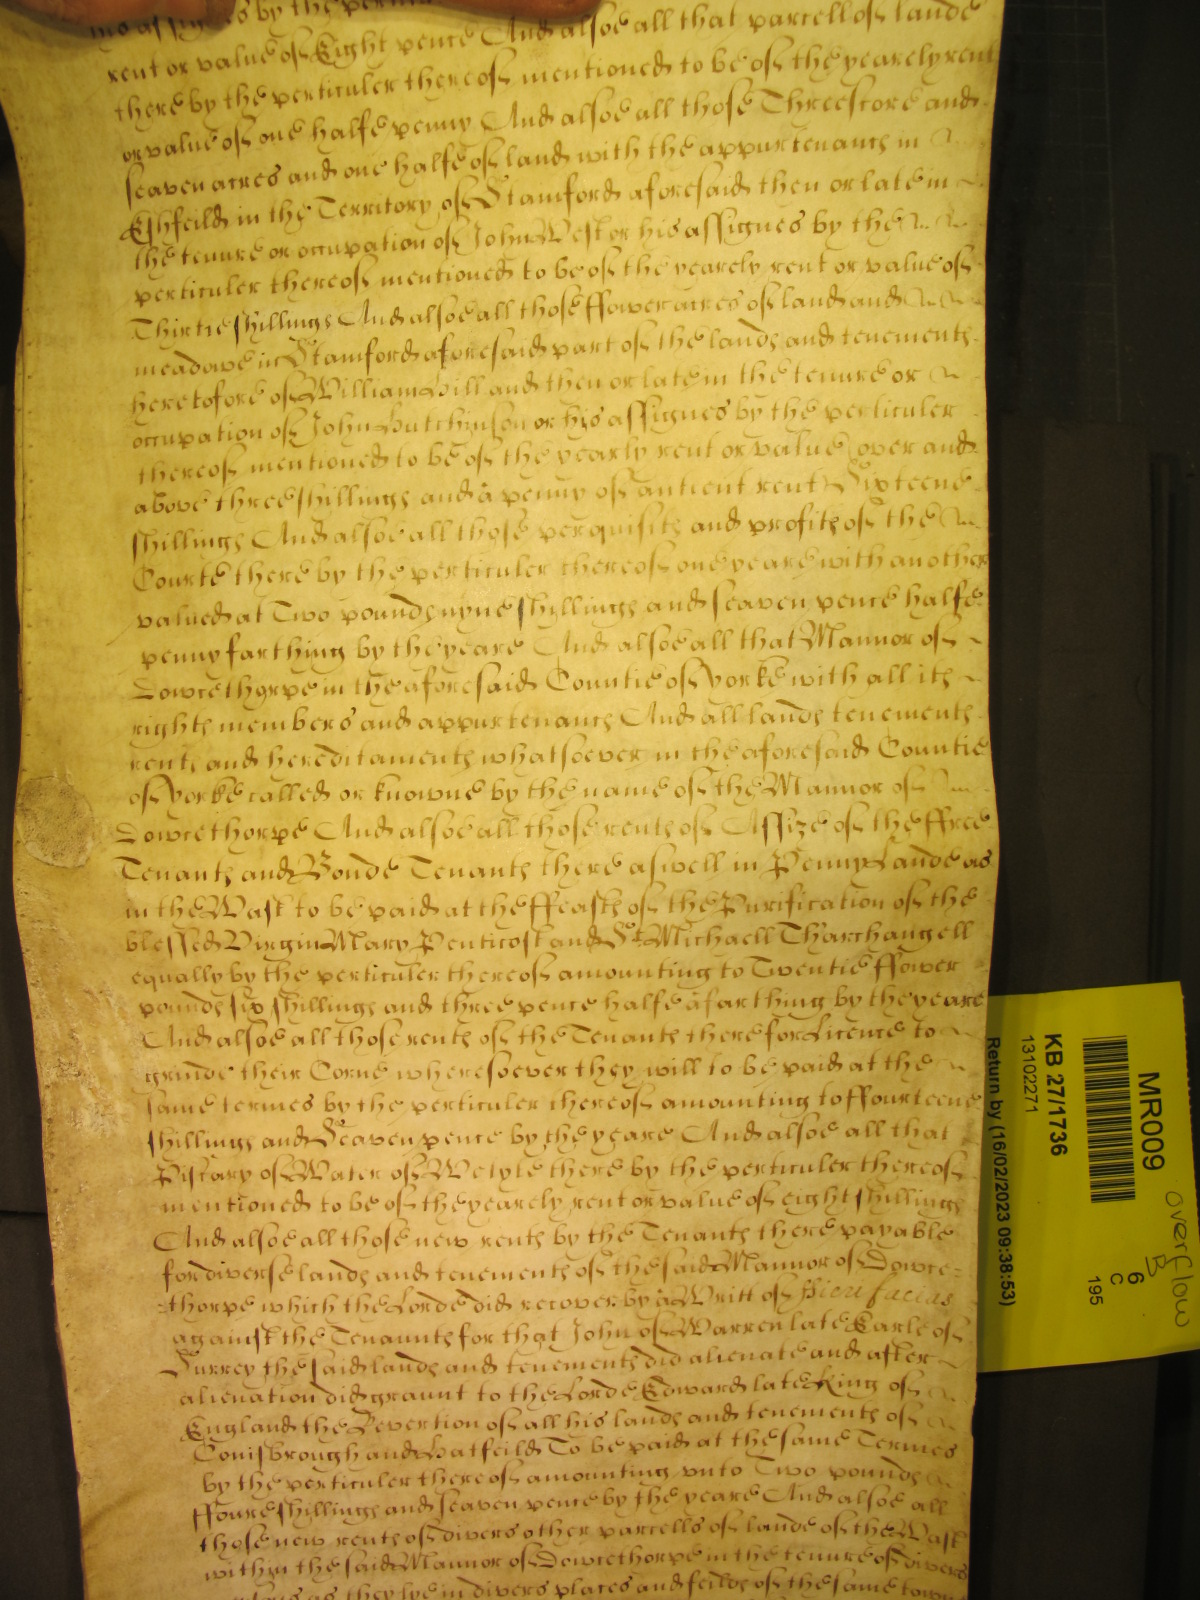 his assignes by the
rent or value of Eight pence And alsoe all that parcell of lande
there by the perticuler thereof mentioned to be of the yearely rent
or value of one halfe penny And alsoe all those Threescore and
seaven acres and one halfe of land with the appurtenants in
Eshfeild in the Territory of Stamford aforesaid then or late in
the tenure or occupation of John West or his assignes by the
perticuler thereof mentioned to be of the yearely rent or value of
Thirtie shillings And alsoe all those ffower acres of land and
meadowe in Stamford aforesaid part of the lands and tenements
heretofore of William Hill and then or late in the tenure or
occupation of John Hutchinson or his assignes by the perticuler
thereof mentioned to be of the yearly rent or value over and
above three shillings and a penny of antient rent Sixteene
shillings And alsoe all those perquisits and profits of the
Courte there by the perticuler thereof one yeare with another
valued at Two pounds nyne shillings and seaven pence halfe
penny farthing by the yeare And alsoe all that Mannor of
Dowcethorpe in the aforesaid Countie of Yorke with all its
rights members and appurtenants And all lands tenements
rents and hereditaments whatsoever in the aforesaid Countie
of Yorke called or knowne by the name of the Mannor of
Dowcethorpe And alsoe all those rents of Assize of the ffree
Tenants and Bonde Tenants there aswell in Penny Lande as
in the Wast to be paid at the ffeasts of the Purification of the
blessed Virgin Mary Penticost and St Michaell Tharchangell
equally by the perticuler thereof amounting to Twentie ffower
pounds six shillings and three pence halfe a farthing by the yeare
And alsoe all those rents of the Tenants there for Licence to
grinde their Corne wheresoever they will to be paid at the
same termes by the perticuler thereof amounting to ffourteene
shillings and Seaven pence by the yeare And alsoe all that
Piscary of Water of Welyte there by the perticuler thereof
mentioned to be of the yearely rent or value of eight shillings
And alsoe all those new rents by the Tenants there payable
for diverse lands and tenements of the said Mannor of Dowce=
thorpe which the Lorde did recover by a Writt of fieri facias
against the Tenaunts for that John of Warren late Earle of
Surrey the said lands and tenements did alienate and after
alienation did graunt to the Lorde Edward late King of
England the Revertion of all his lands and tenements of
Conisbrough and Hatfeild To be paid at the same Termes
by the perticuler thereof amounting unto Two pounds
ffoure shillings and seaven pence by the yeare And alsoe all
those new rents of divers other parcells of lande of the Wast
within the said Mannor of Dowcethorpe in the tenure of divers
as they lye in divers places and feilds of the same towne
MR009
KB 27/1736
13102271
Return by (16/02/2023 09:38:53)
6
C
195
overflow
B